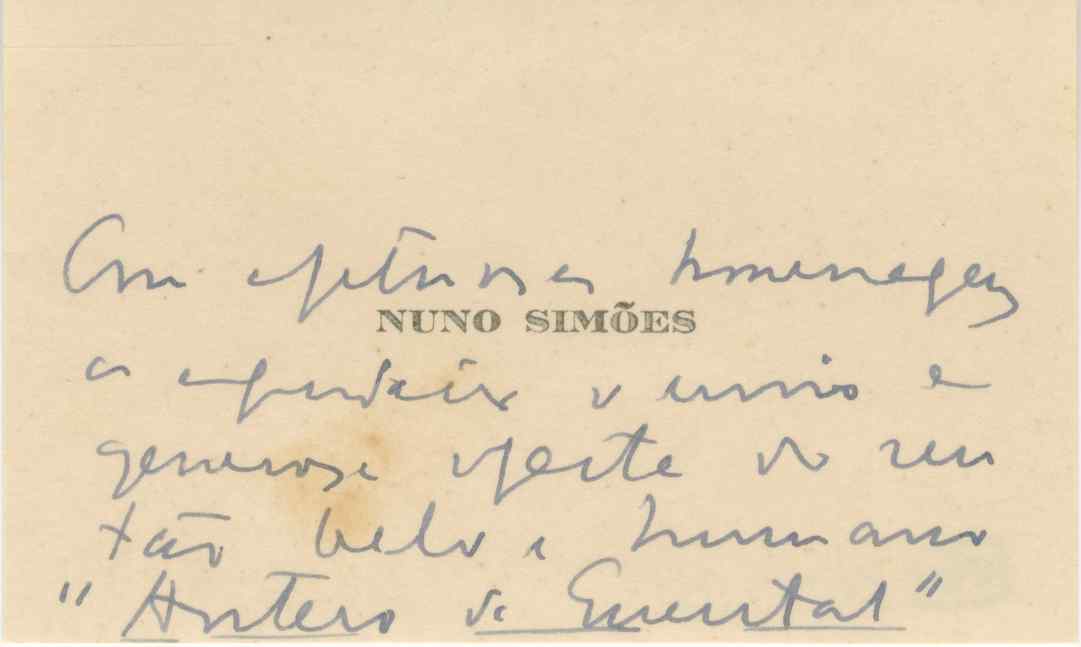 Com afetuosa homenagem
NUNO SIMÕES
a agradecer o envio e
generosa oferta do seu
tão belo e humano
"Antero de Quental"